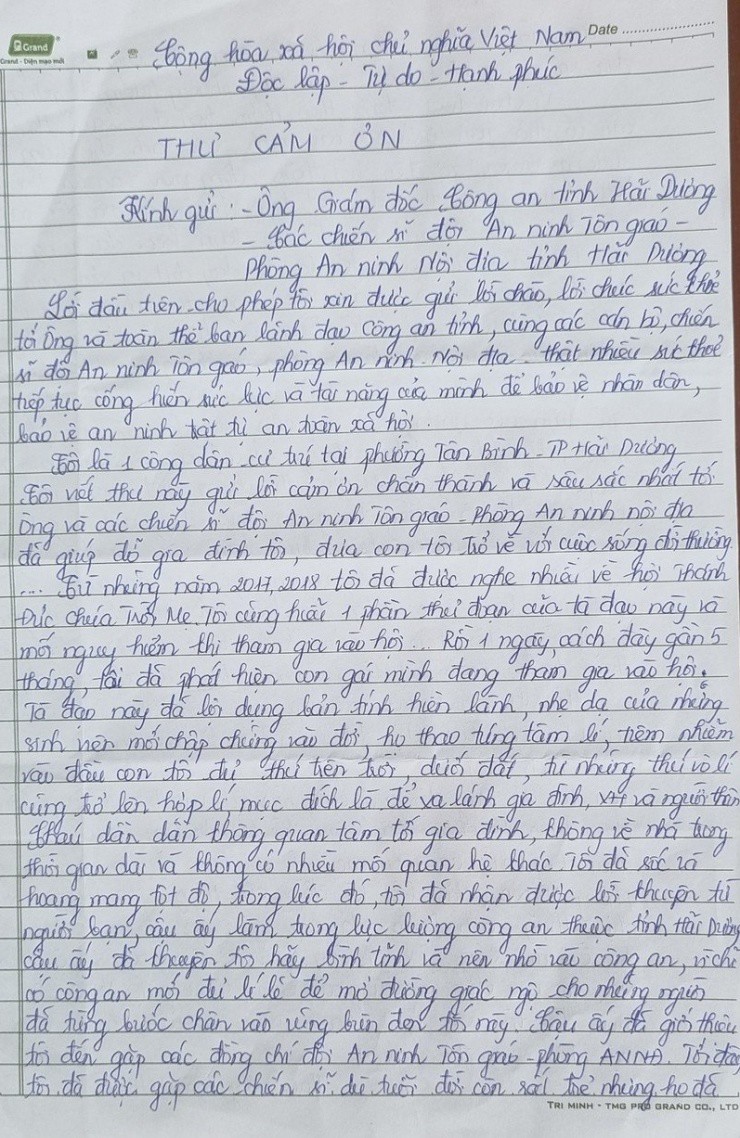 Grand
Grand - Diện mạo mới
Date
Cộng hòa xã hội chủ nghĩa Việt Nam
Độc lập - Tự do - Hạnh phúc
THƯ CẢM ƠN
Kính gửi: - Ông Giám đốc Công an tỉnh Hải Dương
- Các chiến sĩ đội An ninh Tôn giáo -
Phòng An ninh Nội địa tỉnh Hải Dương
Lời đầu tiên cho phép tôi xin được gửi lời chào, lời chúc sức khoẻ
tới Ông và toàn thể ban lãnh đạo công an tỉnh, cùng các cán bộ, chiến
sĩ đội An ninh Tôn giáo, phòng An ninh Nội địa thật nhiều sức khoẻ
tiếp tục cống hiến sức lực và tài năng của mình để bảo vệ nhân dân,
bảo vệ an ninh trật tự an toàn xã hội.
Tôi là 1 công dân cư trú tại phường Tân Bình - TP Hải Dương
Tôi viết thư này gửi lời cảm ơn chân thành và sâu sắc nhất tới
Ông và các chiến sĩ đội An ninh Tôn giáo - Phòng An ninh nội địa
đã giúp đỡ gia đình tôi, đưa con tôi trở về với cuộc sống đời thường
... Từ những năm 2017, 2018 tôi đã được nghe nhiều về hội Thánh
Đức chúa Trời Mẹ. Tôi cũng hiểu 1 phần thủ đoạn của tà đạo này và
mối nguy hiểm khi tham gia vào hội... Rồi 1 ngày, cách đây gần 5
tháng, tôi đã phát hiện con gái mình đang tham gia vào hội.
Tà đạo này đã lợi dụng bản tính hiền lành, nhẹ dạ của những
sinh viên mới chập chững vào đời, họ thao túng tâm lí, tiêm nhiễm
vào đầu con tôi đủ thứ trên trời, dưới đất, từ những thứ vô lí
cũng trở lên hợp lí, mục đích là để xa lánh gia đình, XH và người thân
Cháu dần dần không quan tâm tới gia đình, không về nhà trong
thời gian dài và không có nhiều mối quan hệ khác. Tôi đã sốc và
hoang mang tột độ, trong lúc đó, tôi đã nhận được lời khuyên từ
người bạn, cậu ấy làm trong lực lượng công an thuộc tỉnh Hải Dương
cậu ấy đã khuyên tôi hãy bình tĩnh và nên nhờ vào công an, vì chỉ
có công an mới đủ lí lẽ để mở đường giác ngộ cho những người
đã từng bước chân vào vũng bùn đen tối này. Cậu ấy đã giới thiệu
tôi đến gặp các đồng chí đội An ninh Tôn giáo - phòng ANNĐ. Tới đây
tôi đã được gặp các chiến sĩ dù tuổi đời còn rất trẻ nhưng họ đã
TRI MINH - TMG PRO GRAND CO., LTD